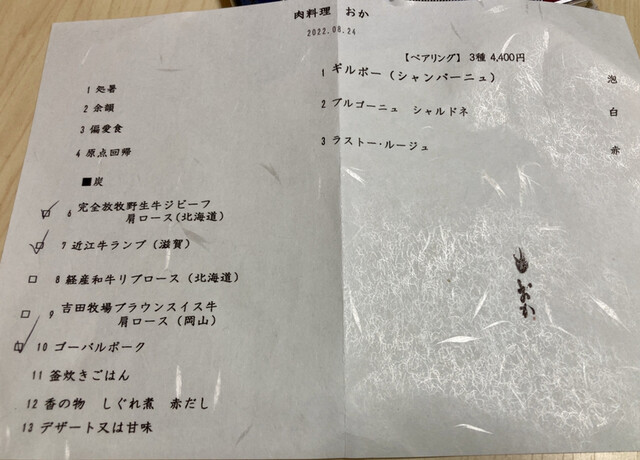 肉料理 おか
2022.08.24
1 処暑
2 余韻
3 偏愛食
4 原点回帰
■炭
6 完全放牧野生牛ジビーフ
肩ロース(北海道)
7 近江牛ランプ(滋賀)
8 経産和牛リブロース(北海道)
9 吉田牧場ブラウンスイス牛
肩ロース(岡山)
10 ゴーバルポーク
11 釜炊きごはん
12 香の物 しぐれ煮 赤だし
13 デザート又は甘味
【ペアリング】 3種 4,400円
1 ギルボー(シャンパーニュ) 泡
2 ブルゴーニュ シャルドネ 白
3 ラストー・ルージュ 赤
おか